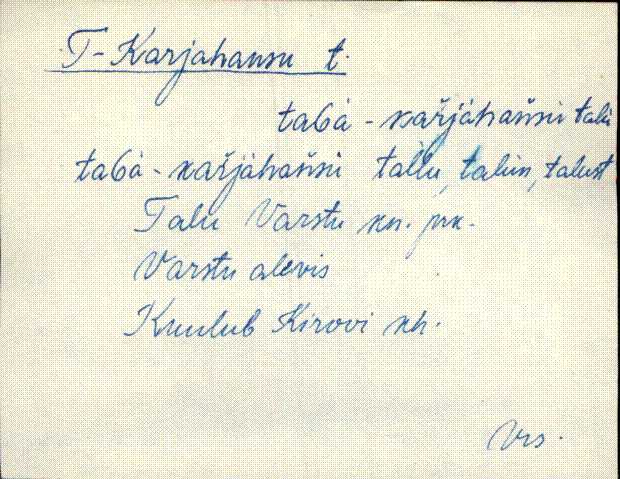 T-Karjahansu t.
taБa - kařjáhańsu talu
taБa - kařjáhańsi tallu, talun, talust
Talu Varstu kn. prk.
Varstu alevis
Kuulub Kirovi kh.
Vrs.